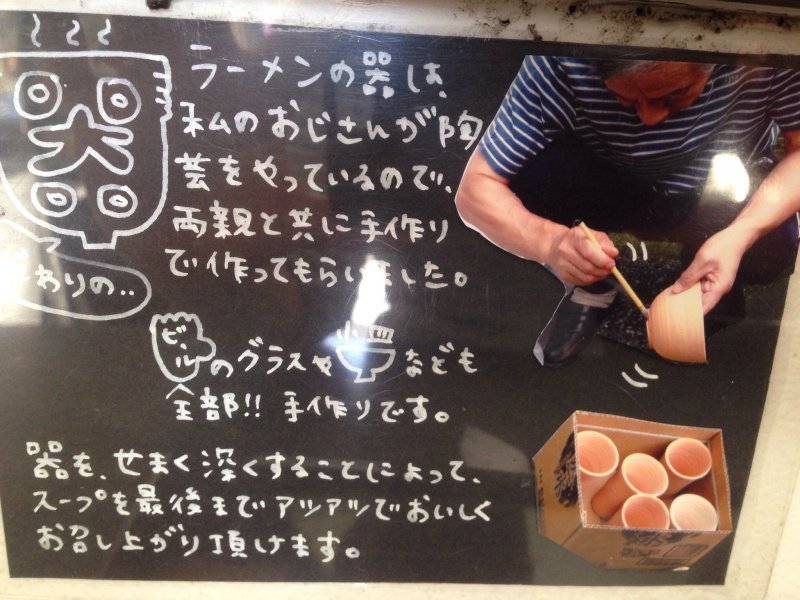 器
わりの‥
ラーメンの器は、
私のおじさんが陶
芸をやっているので、
両親と共に手作り
で作ってもらいました。
ビールのグラスや小皿なども
全部!! 手作りです。
器を、せまく深くすることによって、
スープを最後までアツアツでおいしく
お召し上がり頂けます。